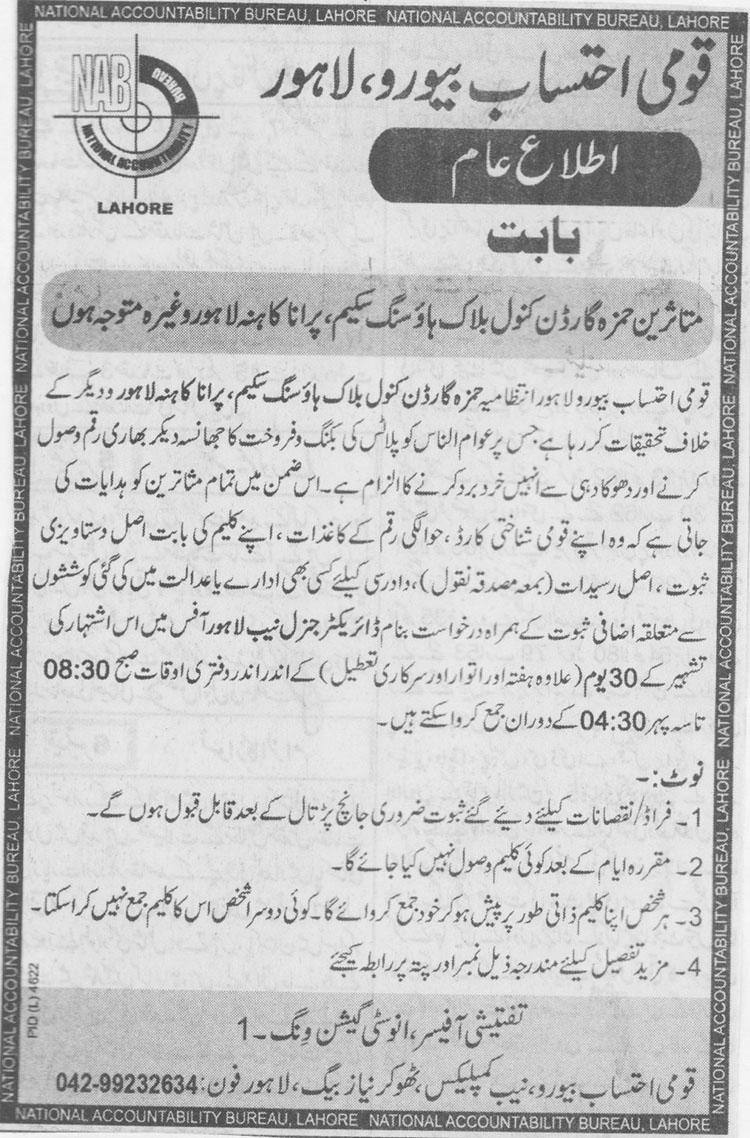 NATIONAL ACCOUNTABILITY BUREAU, LAHORE NATIONAL ACCOUNTABILITY BUREAU, LAHORE
قومی احتساب بیورو، لاہور
NAB
BUREAU
NATIONAL ACCOUNTABILITY
LAHORE
اطلاع عام
بابت
متاثرین حمزہ گارڈن کنول بلاک ہاؤسنگ سکیم، پرانا کاہنہ لاہور وغیرہ متوجہ ہوں
قومی احتساب بیورو لاہور انتظامیہ حمزہ گارڈن کنول بلاک ہاؤسنگ سکیم، پرانا کاہنہ لاہور و دیگر کے
خلاف تحقیقات کر رہا ہے جس پر عوام الناس کو پلاٹس کی بکنگ و فروخت کا جھانسہ دیکر بھاری رقم وصول
کرنے اور دھوکا دہی سے انہیں خرد برد کرنے کا الزام ہے۔ اس ضمن میں تمام متاثرین کو ہدایات کی
جاتی ہے کہ وہ اپنے قومی شناختی کارڈ، حوالگی رقم کے کاغذات، اپنے کلیم کی بابت اصل دستاویزی
ثبوت، اصل رسیدات (بمعہ مصدقہ نقول)، دادرسی کیلئے کسی بھی ادارے یا عدالت میں کی گئی کوششوں
سے متعلقہ اضافی ثبوت کے ہمراہ درخواست بنام ڈائریکٹر جنرل نیب لاہور آفس میں اس اشتہار کی
تشہیر کے 30 یوم (علاوہ ہفتہ اور اتوار اور سرکاری تعطیل) کے اندر اندر دفتری اوقات صبح 08:30
تا سہ پہر 04:30 کے دوران جمع کروا سکتے ہیں۔
نوٹ:۔
1۔ فراڈ/نقصانات کیلئے دیئے گئے ثبوت ضروری جانچ پڑتال کے بعد قابل قبول ہوں گے۔
2۔ مقررہ ایام کے بعد کوئی کلیم وصول نہیں کیا جائے گا۔
3۔ ہر شخص اپنا کلیم ذاتی طور پر پیش ہو کر خود جمع کروائے گا۔ کوئی دوسرا شخص اس کا کلیم جمع نہیں کرا سکتا۔
4۔ مزید تفصیل کیلئے مندرجہ ذیل نمبر اور پتہ پر رابطہ کیجئے
تفتیشی آفیسر، انوسٹی گیشن ونگ۔1
قومی احتساب بیورو، نیب کمپلیکس، ٹھوکر نیاز بیگ، لاہور فون: 042-99232634
PID (L) 4622
NATIONAL ACCOUNTABILITY BUREAU, LAHORE NATIONAL ACCOUNTABILITY BUREAU, LAHORE
NATIONAL ACCOUNTABILITY BUREAU, LAHORE NATIONAL ACCOUNTABILITY BUREAU, LAHORE NATIONAL ACCOUNTABILITY BUREAU, LAHORE
NATIONAL ACCOUNTABILITY BUREAU, LAHORE NATIONAL ACCOUNTABILITY BUREAU, LAHORE NATIONAL ACCOUNTABILITY BUREAU, LAHORE